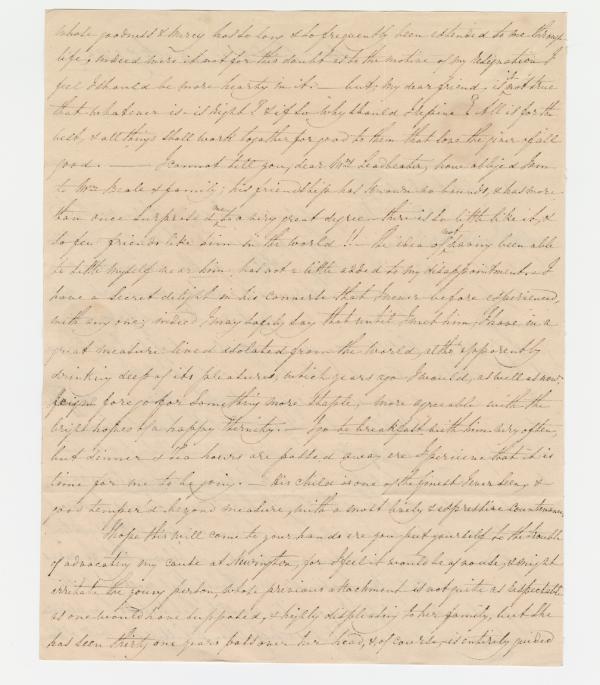 whose goodness & mercy has so long & so frequently been extended to me through
life; indeed were it not for this doubt as to the motive of my resignation I
feel I should be more hearty in it. — but, my dear friend, is it not true
that whatever is - is right? & if so why should I repine? All is for the
best, & all things shall work together for good to them that love the giver of all
good. — I cannot tell you, dear Mrs Leadbeater, how obliged I am
to Wm Beale & family; his friendship has known no bounds, & has more
than once surprised me to a very great degree - there is so little like it, &
so few friends like him in the world!! - The idea of not having been able
to settle myself near him, has not a little added to my disappointment. - I
have a secret delight in his converse that I never before experienced,
with any one; indeed I may safely say that until I met him, I have in a
great measure lived isolated from the world, altho' apparently
drinking deep of its pleasures, which years ago I would, as well as now,
forego for something more stable, more agreeable with the
bright hopes of a happy eternity. — I go to breakfast with him very often,
but dinner & tea hours are passed away ere I perceive that it is
time for me to be going. — His child is one of the finest I ever saw, &
good temper'd beyond measure, with a most lively & expressive countenance.
I hope this will come to your hands ere you put yourself to the trouble
of advocating my cause at Newington, for I feel it would be of no use, & might
irritate the young person, whose previous attachment is not quite as respectable
as one would have supposed, & highly displeasing to her family, but she
has seen thirty one years pass over her head, & of course, is entirely guided